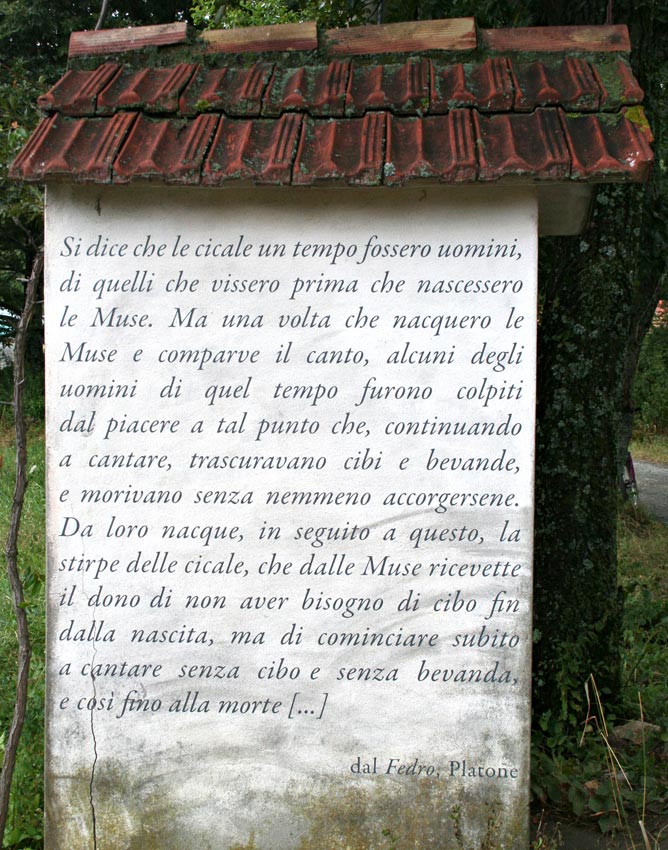 Si dice che le cicale un tempo fossero uomini,
di quelli che vissero prima che nascessero
le Muse. Ma una volta che nacquero le
Muse e comparve il canto, alcuni degli
uomini di quel tempo furono colpiti
dal piacere a tal punto che, continuando
a cantare, trascuravano cibi e bevande,
e morivano senza nemmeno accorgersene.
Da loro nacque, in seguito a questo, la
stirpe delle cicale, che dalle Muse ricevette
il dono di non aver bisogno di cibo fin
dalla nascita, ma di cominciare subito
a cantare senza cibo e senza bevanda,
e così fino alla morte [...]
dal Fedro, Platone